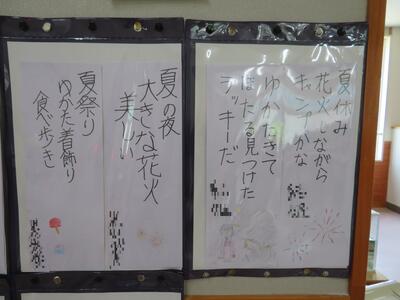 夏休み
花火しながら
キャンプかな
ゆかたきて
ほたる見つけた
ラッキーだ
夏の夜
大きな花火
美しい
夏祭り
ゆかた着飾り
食べ歩き